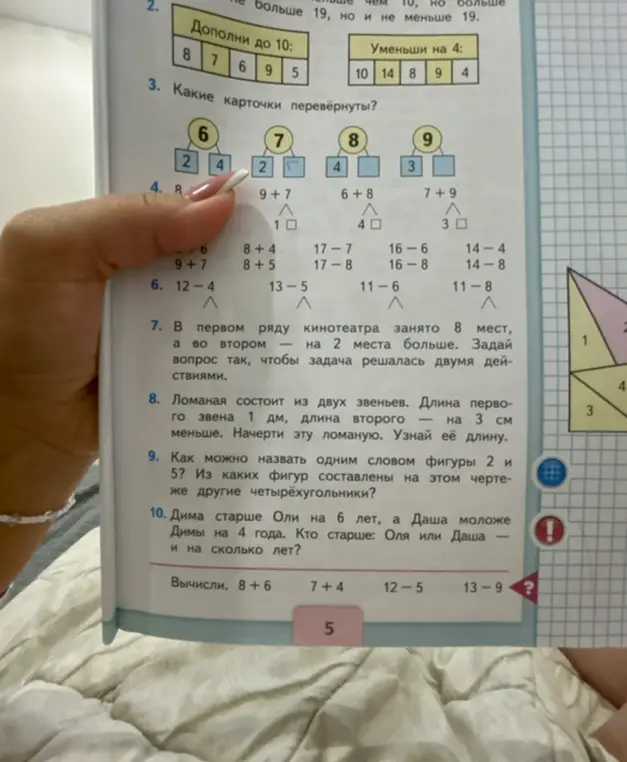 2.
больше 19, но и не меньше 19.
Дополни до 10:
8 7 6 9 5
Уменьши на 4:
10 14 8 9 4
3. Какие карточки перевёрнуты?
6 7 8 9
2 4 2 5 4 3
4. 8 9 + 7 6 + 8 7 + 9
1 □ 4 □ 3 □
6 8 + 4 17 − 7 16 − 6 14 − 4
9 + 7 8 + 5 17 − 8 16 − 8 14 − 8
6. 12 − 4 13 − 5 11 − 6 11 − 8
7. В первом ряду кинотеатра занято 8 мест,
а во втором — на 2 места больше. Задай
вопрос так, чтобы задача решалась двумя дей-
ствиями.
8. Ломаная состоит из двух звеньев. Длина перво-
го звена 1 дм, длина второго — на 3 см
меньше. Начерти эту ломаную. Узнай её длину.
9. Как можно назвать одним словом фигуры 2 и
5? Из каких фигур составлены на этом черте-
же другие четырёхугольники?
10. Дима старше Оли на 6 лет, а Даша моложе
Димы на 4 года. Кто старше: Оля или Даша —
и на сколько лет?
Вычисли. 8 + 6 7 + 4 12 − 5 13 − 9 ?
5
1
3
4
!